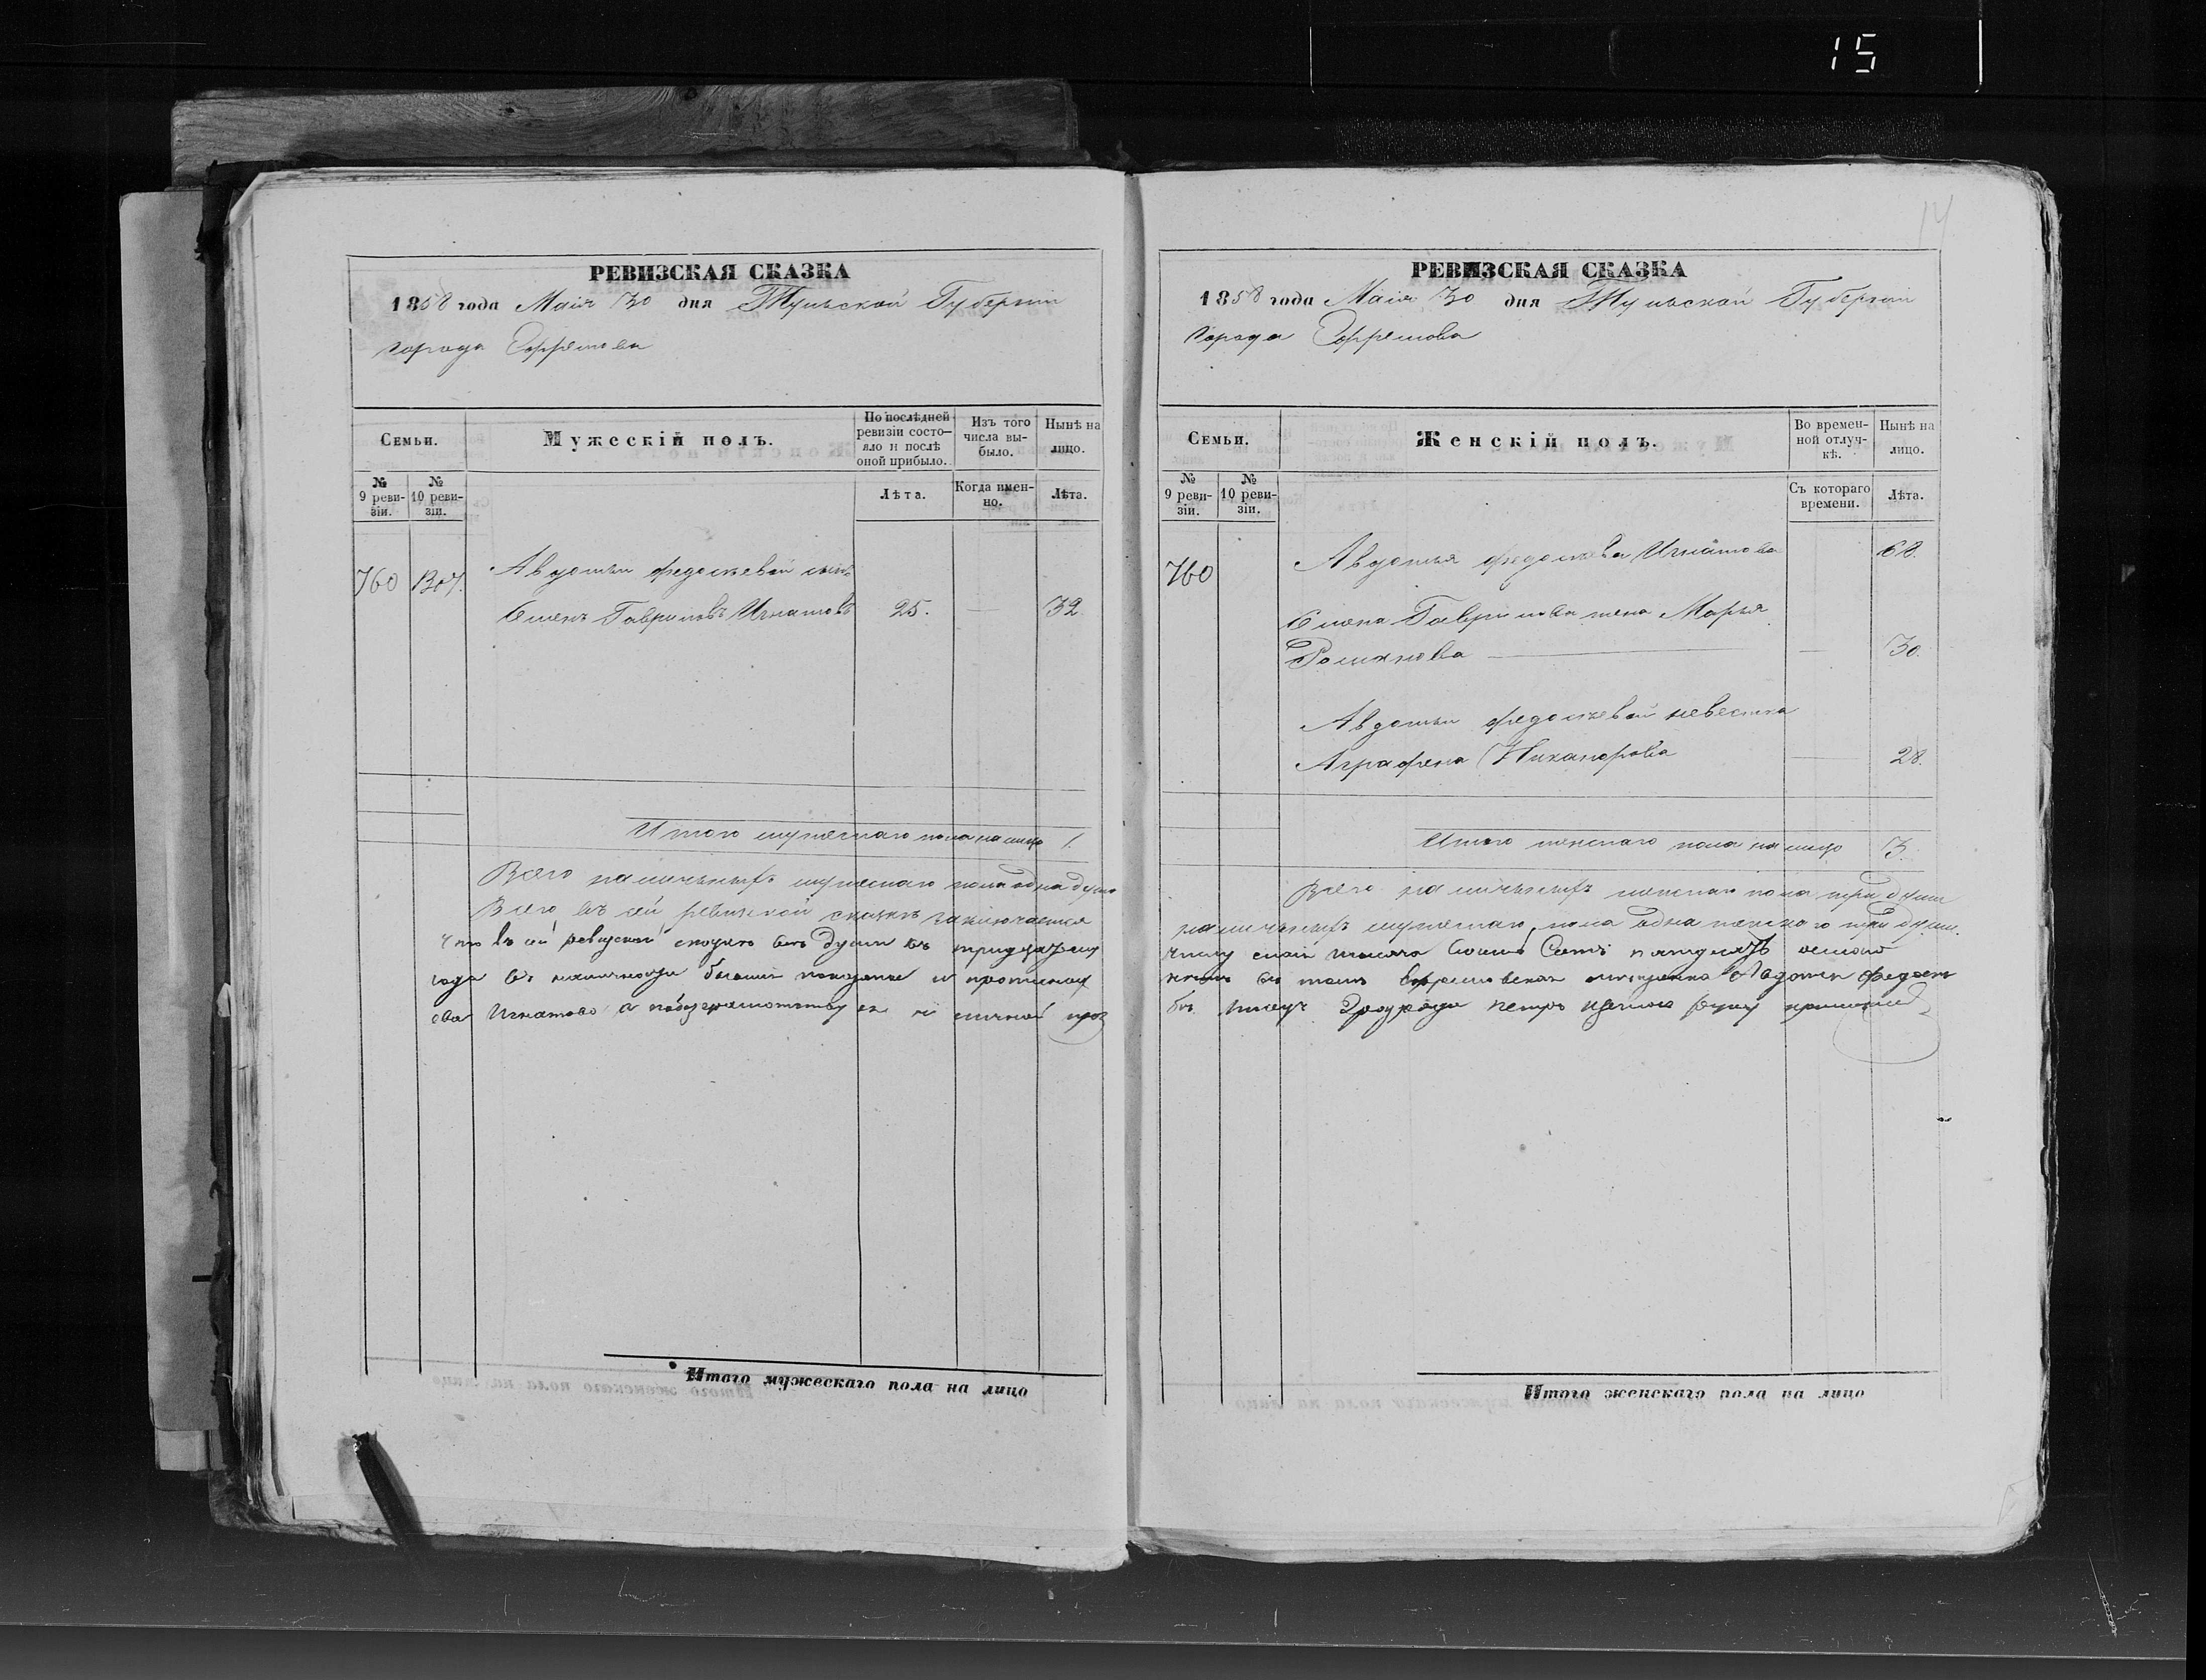 15
14
РЕВИЗСКАЯ СКАЗКА
1858 года Маія 30 дня Тульской Губерніи
города Ефремова
Семьи.
Мужескій полъ.
По послѣдней ревизіи состо-
яло и послѣ оной прибыло.
Изъ того числа вы-
было.
Нынѣ на лицо.
№ 9 реви-
зіи.
№ 10 реви-
зіи.
Лѣта.
Когда имен-
но.
Лѣта.
760 1307. Авдотьи Федосеевой сынъ
Семенъ Гавриловъ Игнатовъ 25. — 32.
Итого мужескаго пола на лицо 1.
Всего наличныхъ мужескаго пола одна душа
Всего въ сей ревизской сказкѣ заключается
что въ сей ревизской
года въ наличности
ева Игнатова а
Итого мужескаго пола на лицо
РЕВИЗСКАЯ СКАЗКА
1858 года Маія 30 дня Тульской Губерніи
города Ефремова
Семьи.
Женскій полъ.
Во времен-
ной отлуч-
кѣ.
Нынѣ на лицо.
№ 9 реви-
зіи.
№ 10 реви-
зіи.
Съ котораго времени.
Лѣта.
760 Авдотья Федосеева Игнатова 68.
Семена Гаврилова жена Марья
Романова — — 30.
Авдотьи Федосеевой невестка
Аграфена Никанорова — 28.
Итого женскаго пола на лицо 3.
Всего наличныхъ женскаго пола три души
наличныхъ мужескаго пола одна женскаго три души.
тысяча восемь сотъ пятдесятъ
въ томъ ефремовская мещанка Авдотья Федосе
руку приложилъ
Итого женскаго пола на лицо